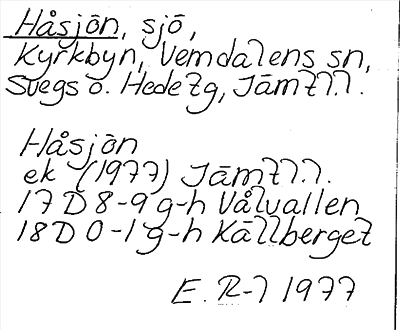 Håsjön, sjö,
Kyrkbyn, Vemdalens sn,
Svegs o. Hede tg, Jämtl.
Håsjön
ek (1977) Jämtl.
17 D 8-9 g-h Vålvallen
18 D 0-1 g-h Källberget
E. R-l 1977